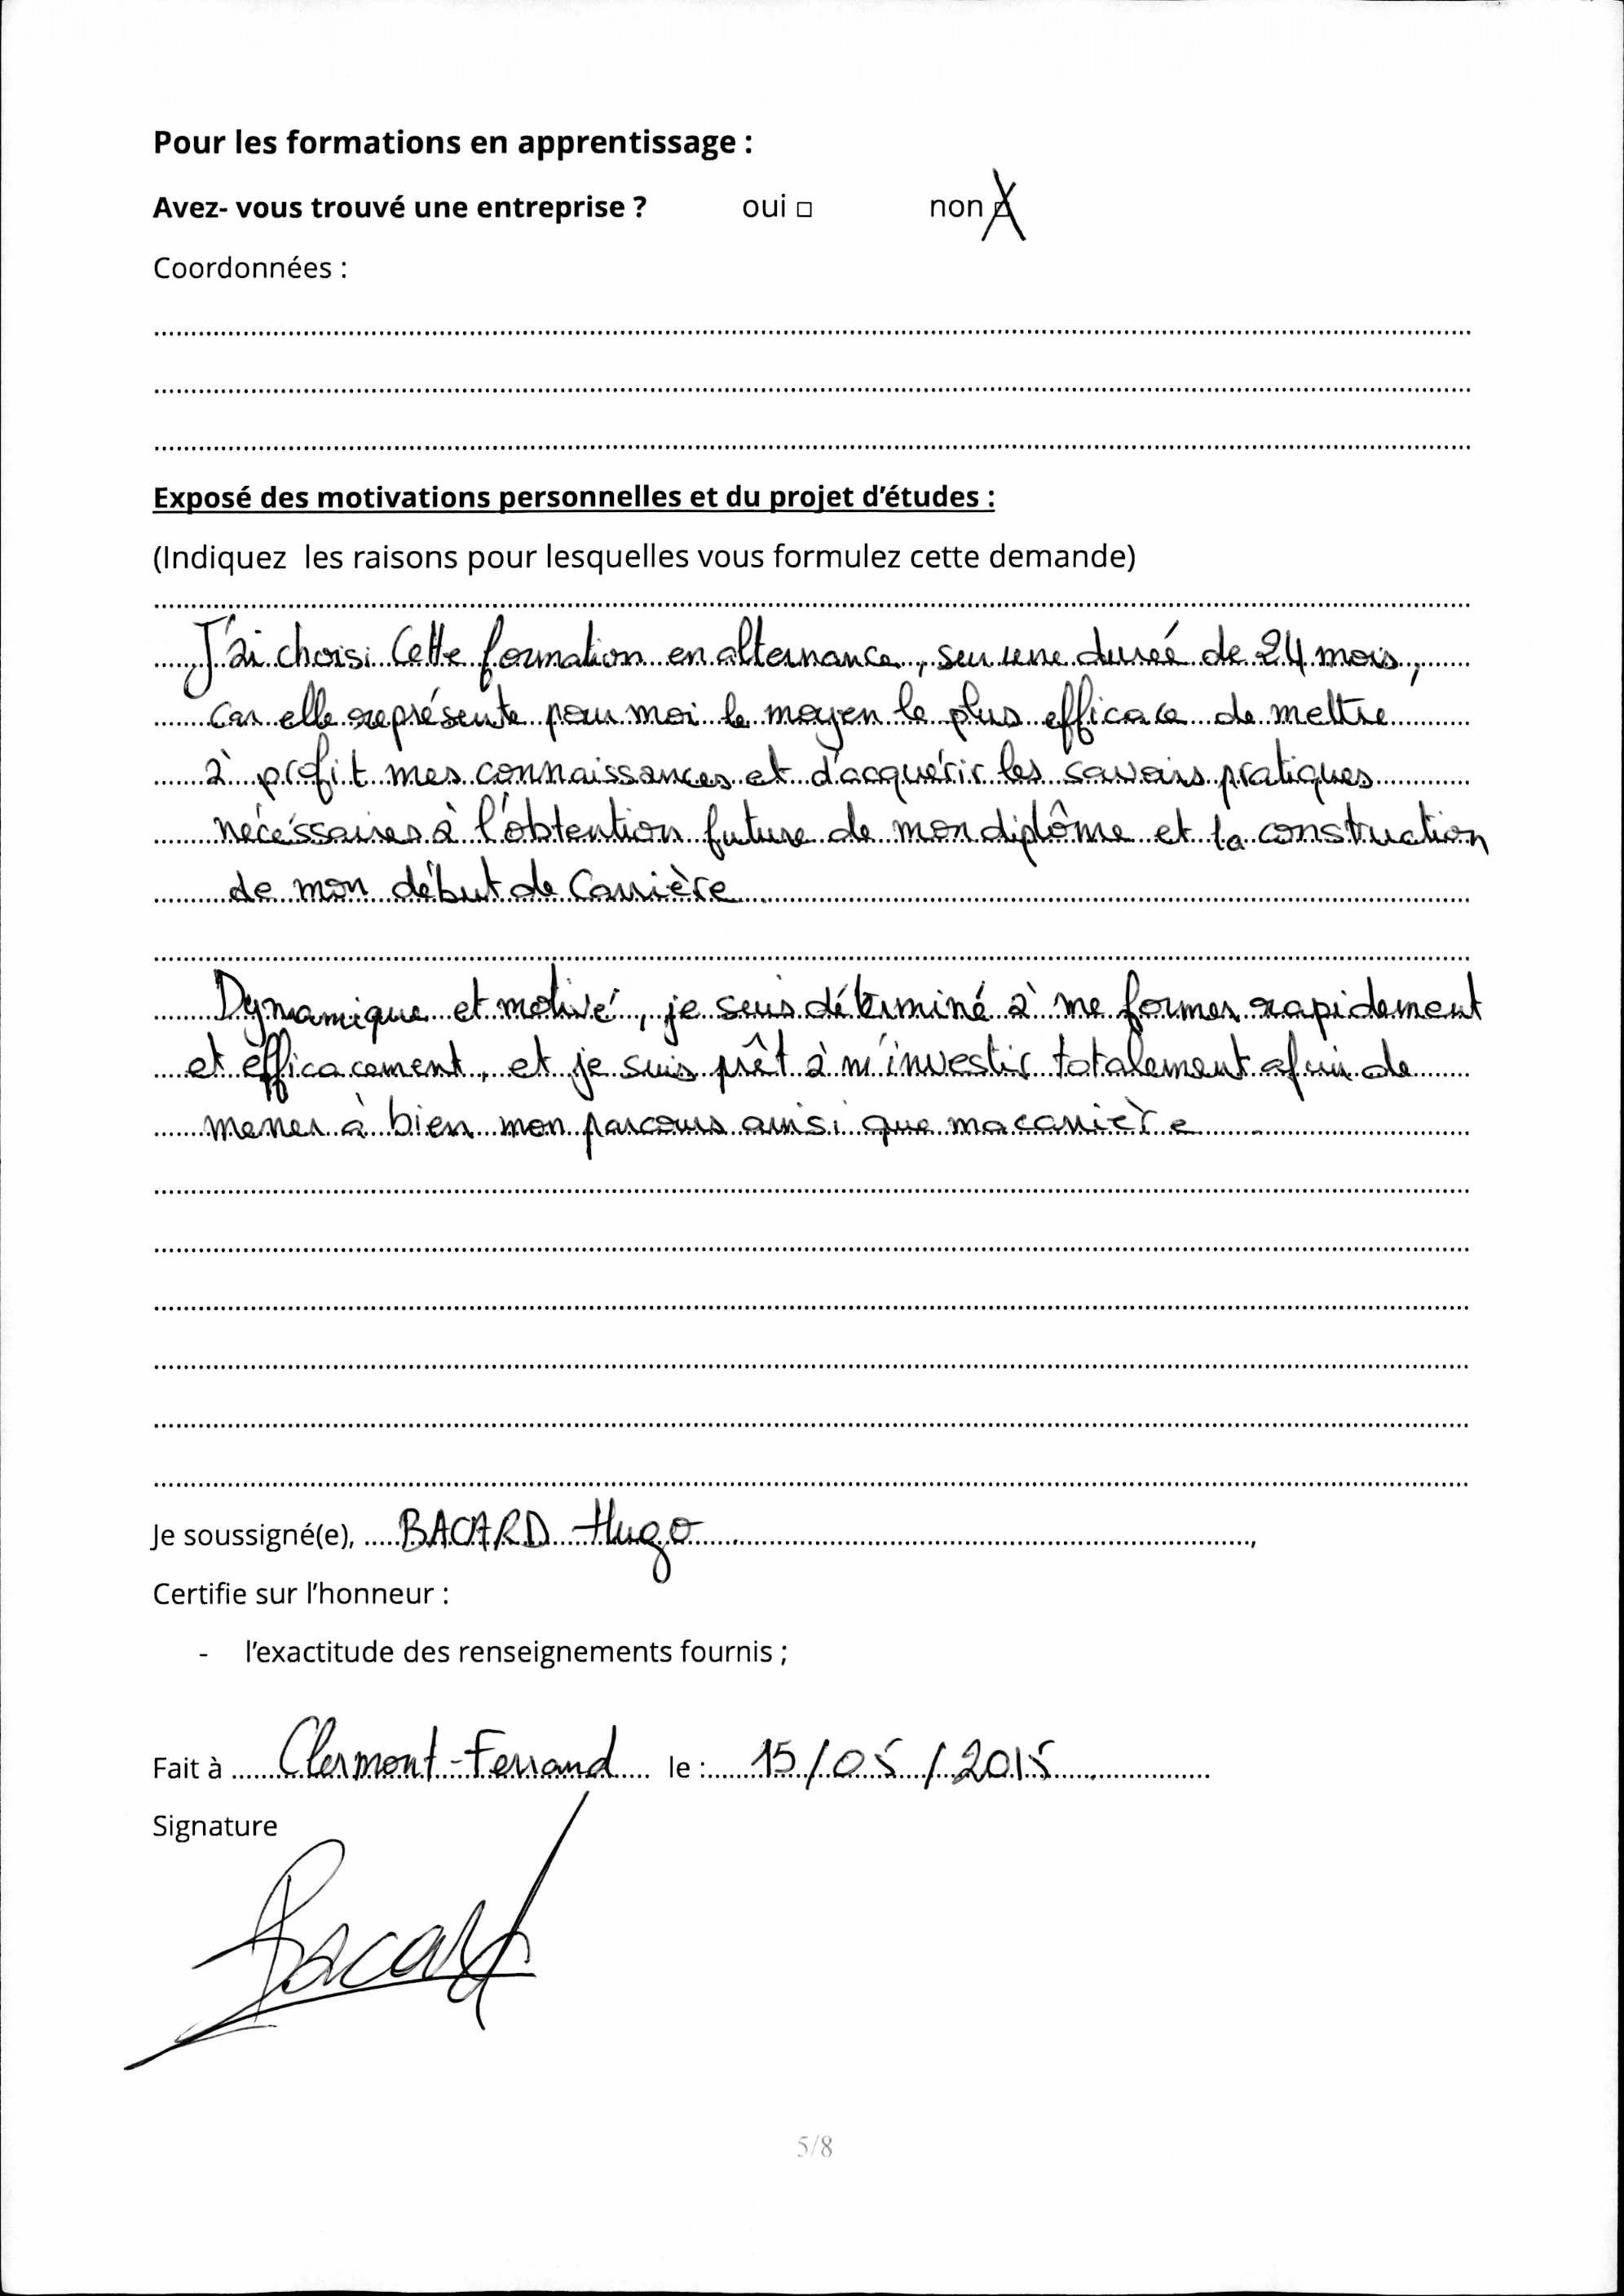 Pour les formations en apprentissage :
Avez- vous trouvé une entreprise ? oui □ non ☒
Coordonnées :
Exposé des motivations personnelles et du projet d'études :
(Indiquez les raisons pour lesquelles vous formulez cette demande)
J'ai choisi Cette formation en alternance, sur une dureé de 24 mois,
Car elle représente pour moi le moyen le plus efficace de mettre
à profit mes connaissances et d'acquérir les savoirs pratiques
nécéssaires à l'obtention future de mon diplôme et la construction
de mon début de Carrière.
Dynamique et motivé, je suis déterminé à me former rapidement
et éfficacement, et je suis prêt à m'investir totalement afin de
mener à bien mon parcours ainsi que ma carrière.
Je soussigné(e), BACARD Hugo,
Certifie sur l'honneur :
- l'exactitude des renseignements fournis ;
Fait à Clermont-Ferrand le : 15/05/2015
Signature
Bacard
5/8